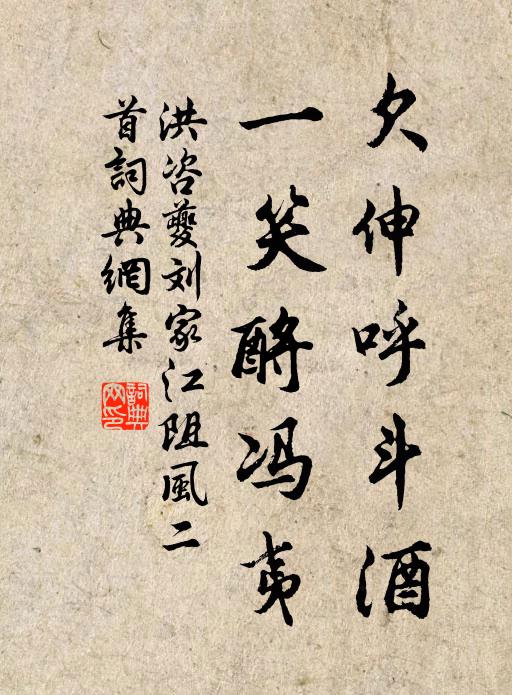 欠伸呼斗酒
一笑酹冯夷
洪咨夔刘家江阻風二
首詞典網集
詞典
网印